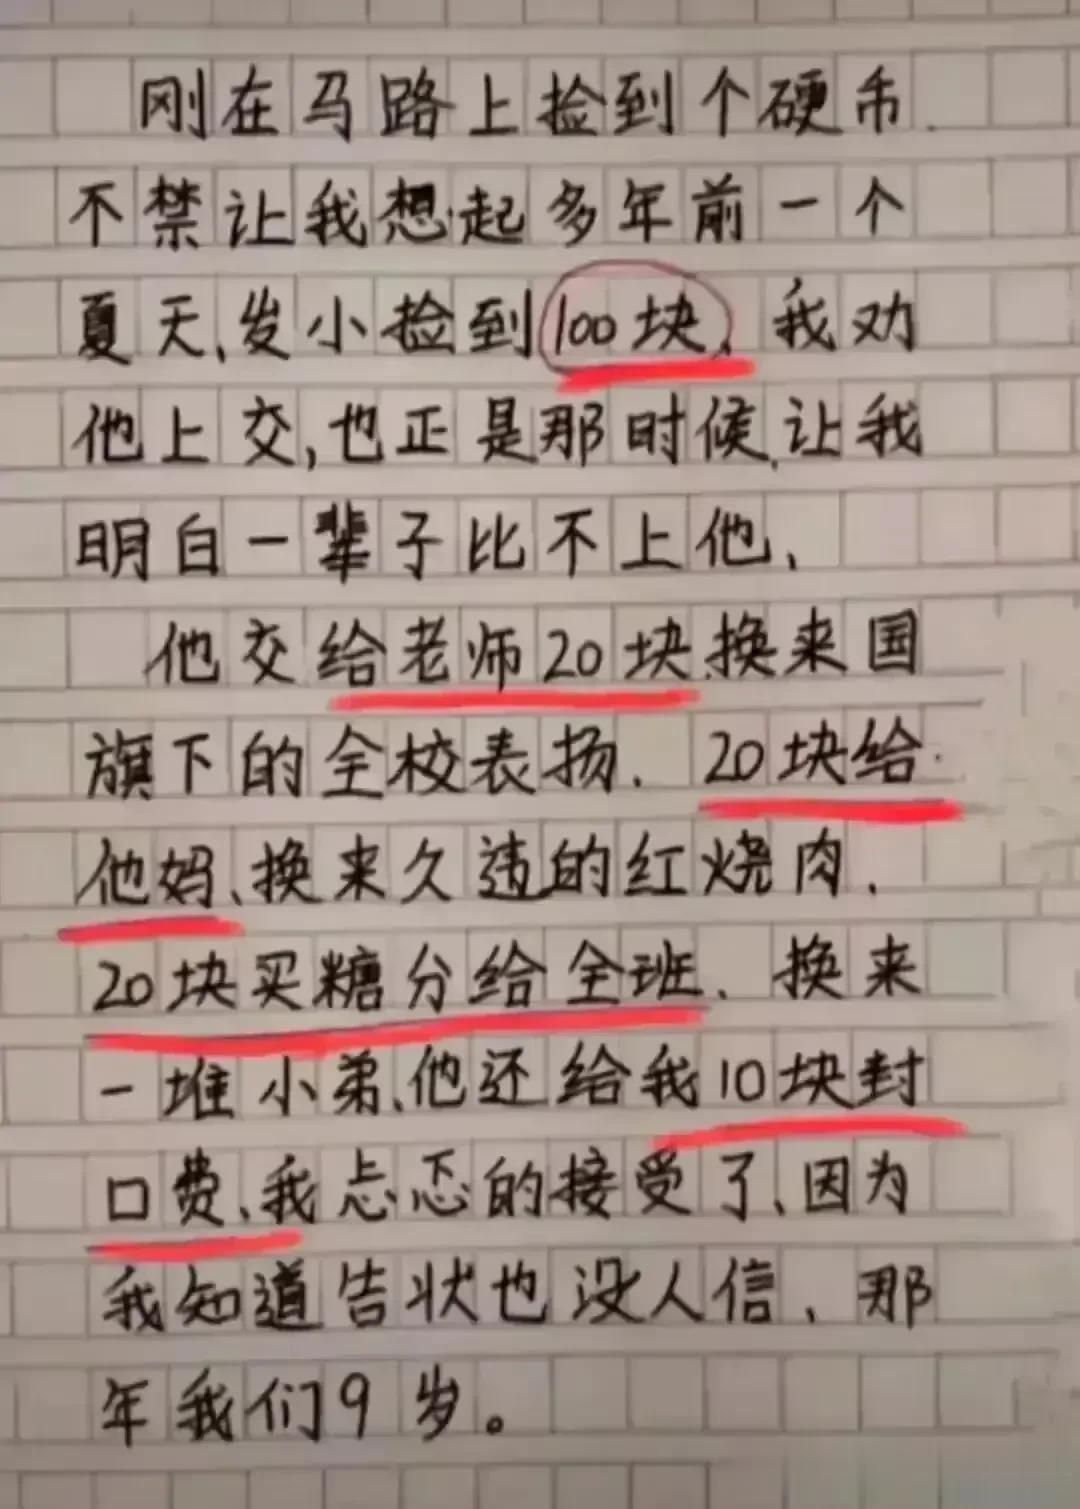 刚在马路上捡到个硬币.
不禁让我想起多年前一个
夏天,发小捡到100块、我劝
他上交,也正是那时候,让我
明白一辈子比不上他、
他交给老师20块换来国
旗下的全校表扬.20块给
他妈、换来久违的红烧肉.
20块买糖分给全班、换来
一堆小弟、他还给我10块封
口费、我忐忑的接受了、因为
我知道告状也没人信、那
年我们9岁。